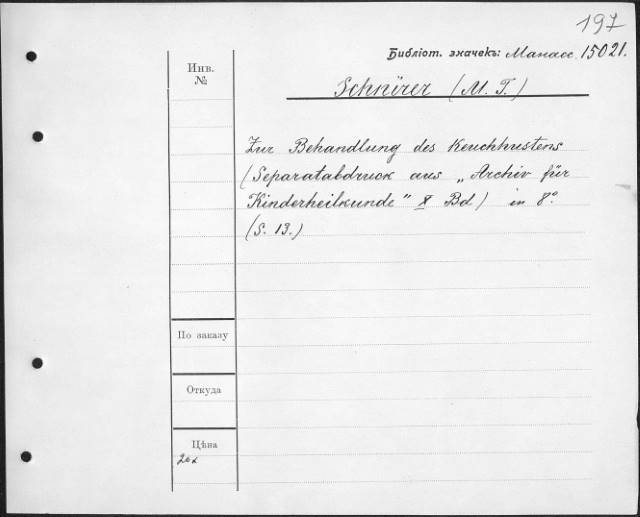 197
Библіот. значекъ: Манасс. 15021.
Инв.
№
Schnirer (M. T.)
Zur Behandlung des Keuchhustens
(Separatabdruck aus „Archiv für
Kinderheilkunde" X Bd) in 8°.
(S. 13.)
По заказу
Откуда
Цѣна